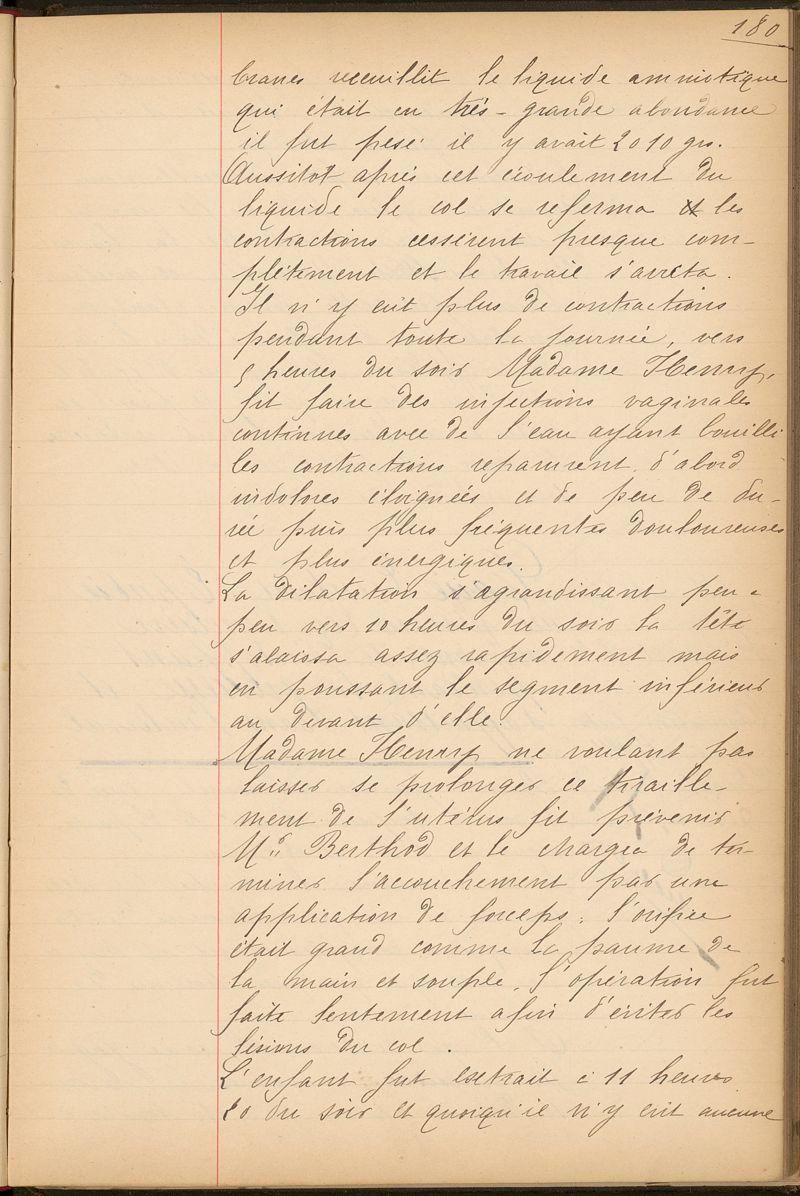 180
branes recueillit le liquide amniotique
qui était en très-grande abondance
il fut pesé il y avait 2010 grs.
Aussitot après cet écoulement du
liquide le col se referma et les
contractions cessèrent presque com-
plètement et le travail s'arrêta.
Il n'y eut plus de contractions
pendant toute la journée, vers
5 heures du soir Madame Henry,
fit faire des injections vaginales
continues avec de l'eau ayant bouilli
les contractions reparurent d'abord
indolores éloignées et de peu de du-
rée puis plus fréquentes douloureuses
et plus énergiques.
La dilatation s'agrandissant peu à
peu vers 10 heures du soir la tête
s'abaissa assez rapidement mais
en poussant le segment inférieur
au devant d'elle.
Madame Henry ne voulant pas
laisser se prolonger ce tiraille-
ment de l'utérus fit prévenir
Mr Berthod et le chargea de ter-
miner l'accouchement par une
application de forceps; l'orifice
était grand comme la paume de
la main et souple, l'opération fut
faite lentement afin d'éviter les
lésions du col.
L'enfant fut extrait à 11 heures
20 du soir et quoiqu'il n'y eut aucune